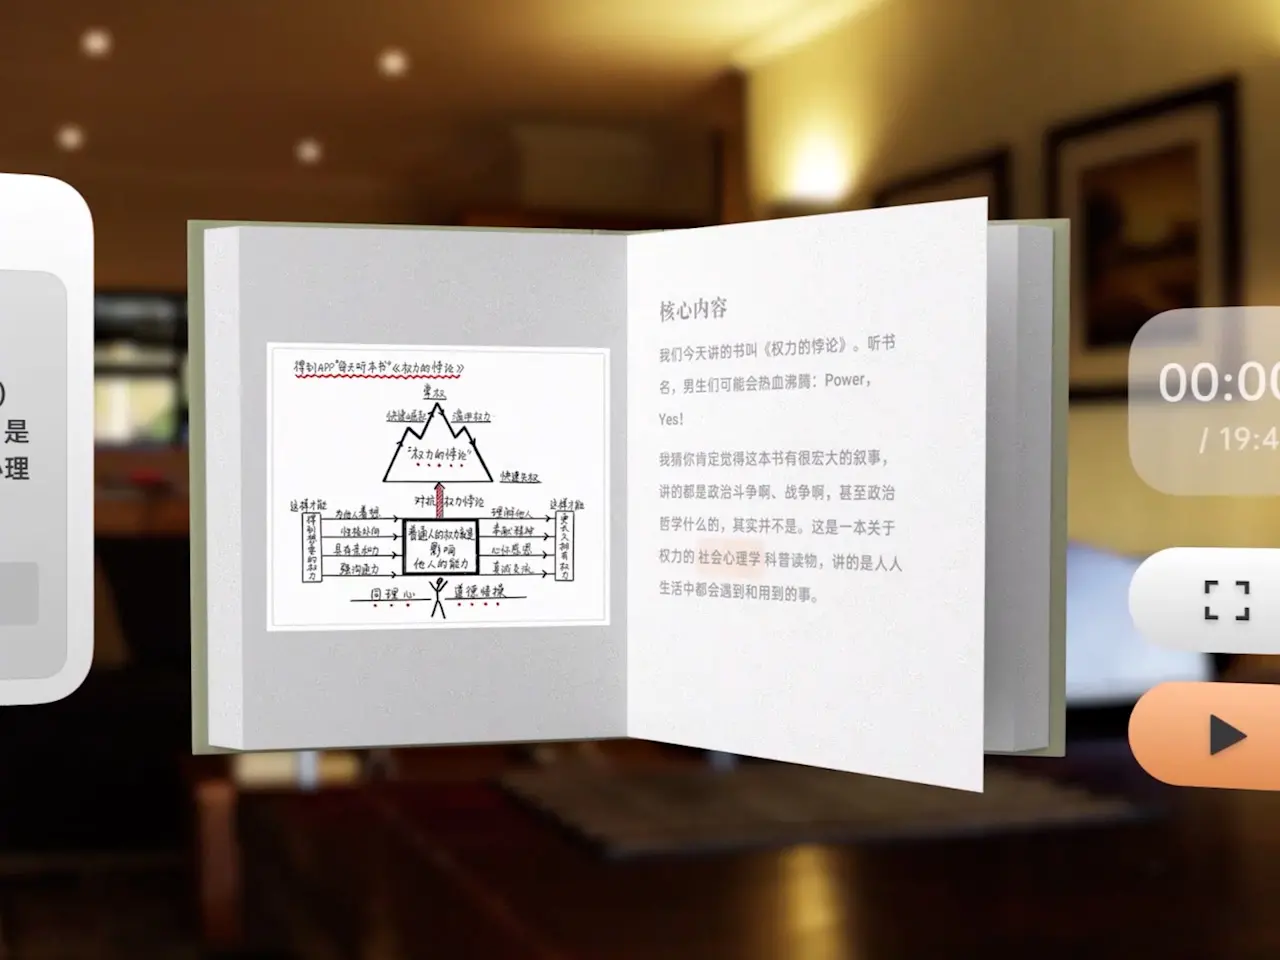 )
是
心理
得到APP"每天听本书"《权力的悖论》
掌权
快速崛起 滥用权力
"权力的悖论"
快速失权
对抗 权力悖论
这样才能
得到想要的权力
为他人着想
性格外向
具有亲和力
强沟通力
普通人的权力就是
影响
他人的能力
理解他人
奉献精神
心怀感恩
真诚交流
这样才能
更长久拥有权力
同理心 道德情操
核心内容
我们今天讲的书叫《权力的悖论》。听书
名，男生们可能会热血沸腾：Power，
Yes!
我猜你肯定觉得这本书有很宏大的叙事，
讲的都是政治斗争啊、战争啊，甚至政治
哲学什么的，其实并不是。这是一本关于
权力的 社会心理学 科普读物，讲的是人人
生活中都会遇到和用到的事。
00:00
/ 19:4